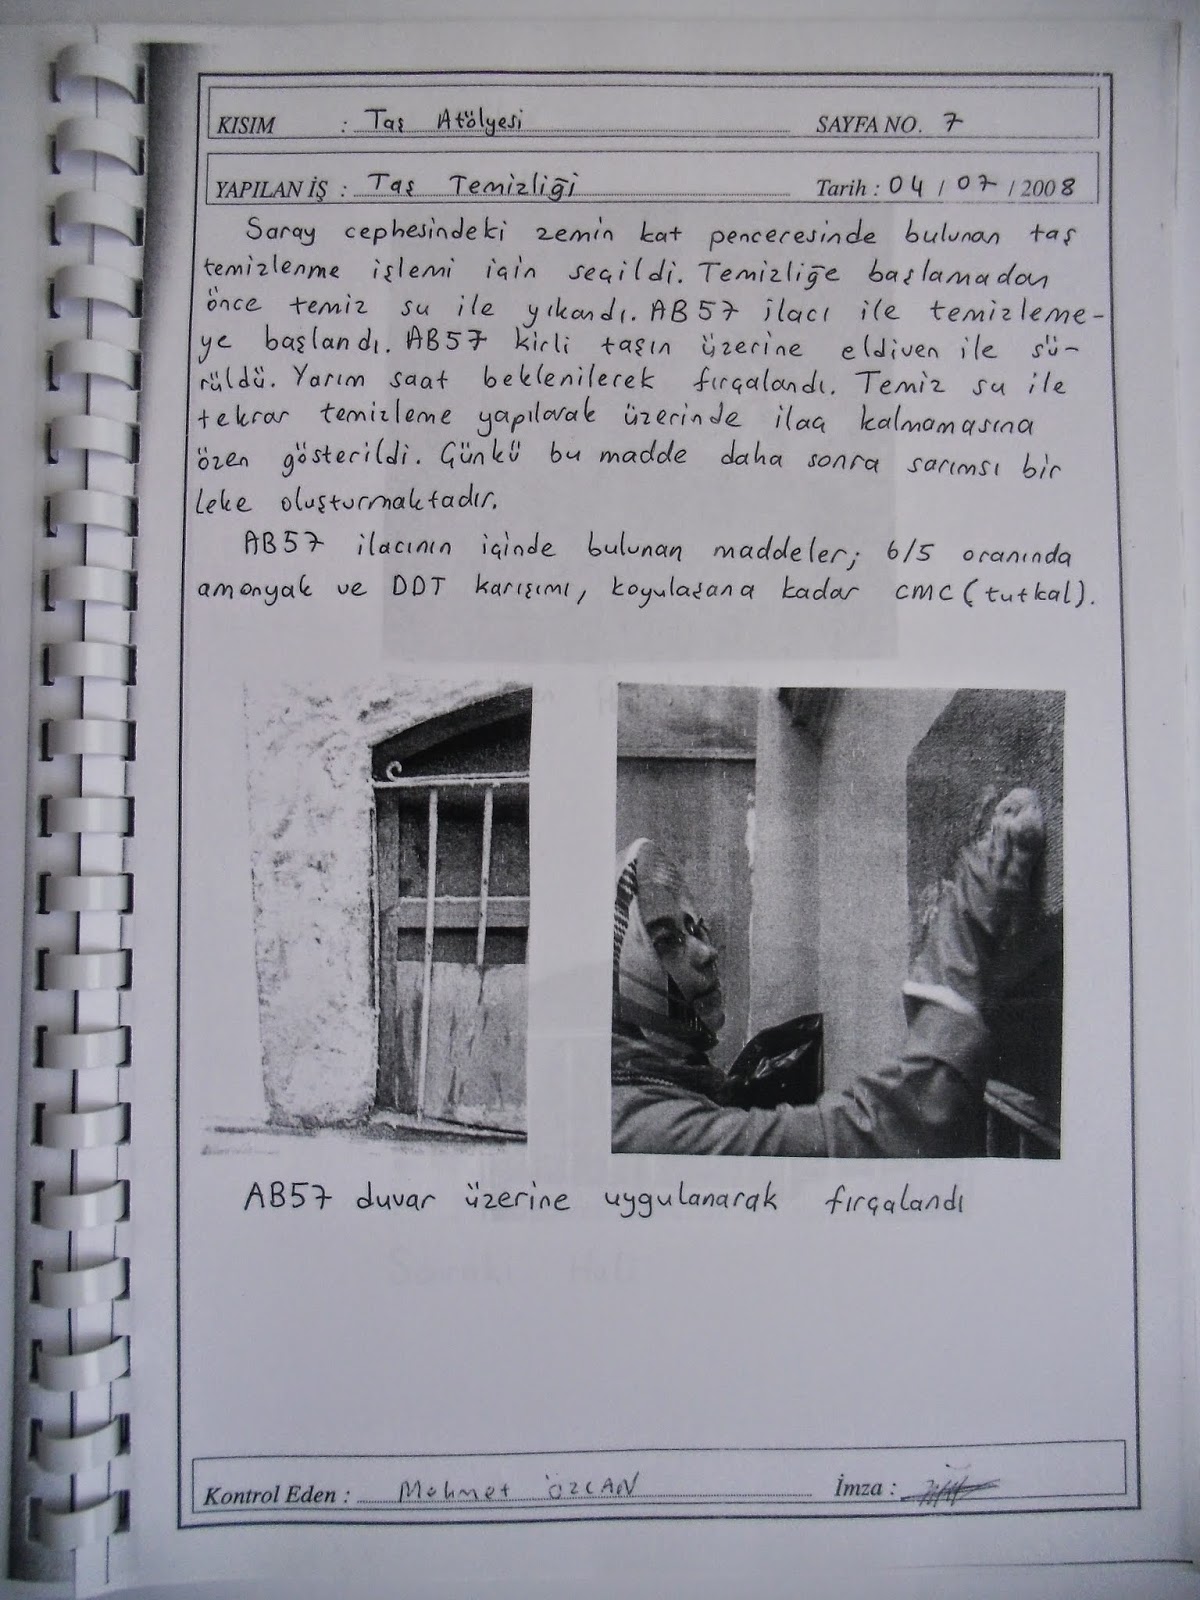 KISIM : Taş Atölyesi SAYFA NO. 7
YAPILAN İŞ : Taş Temizliği Tarih : 04 / 07 / 2008
Saray cephesindeki zemin kat penceresinde bulunan taş
temizlenme işlemi için seçildi. Temizliğe başlamadan
önce temiz su ile yıkandı. AB57 ilacı ile temizleme-
ye başlandı. AB57 kirli taşın üzerine eldiven ile sü-
rüldü. Yarım saat beklenilerek fırçalandı. Temiz su ile
tekrar temizleme yapılarak üzerinde ilaç kalmamasına
özen gösterildi. Çünkü bu madde daha sonra sarımsı bir
leke oluşturmaktadır.
AB57 ilacının içinde bulunan maddeler; 6/5 oranında
amonyak ve DDT karışımı, koyulaşana kadar CMC (tutkal).
AB57 duvar üzerine uygulanarak fırçalandı
Sonraki Hali
Kontrol Eden : Mehmet ÖZCAN İmza :